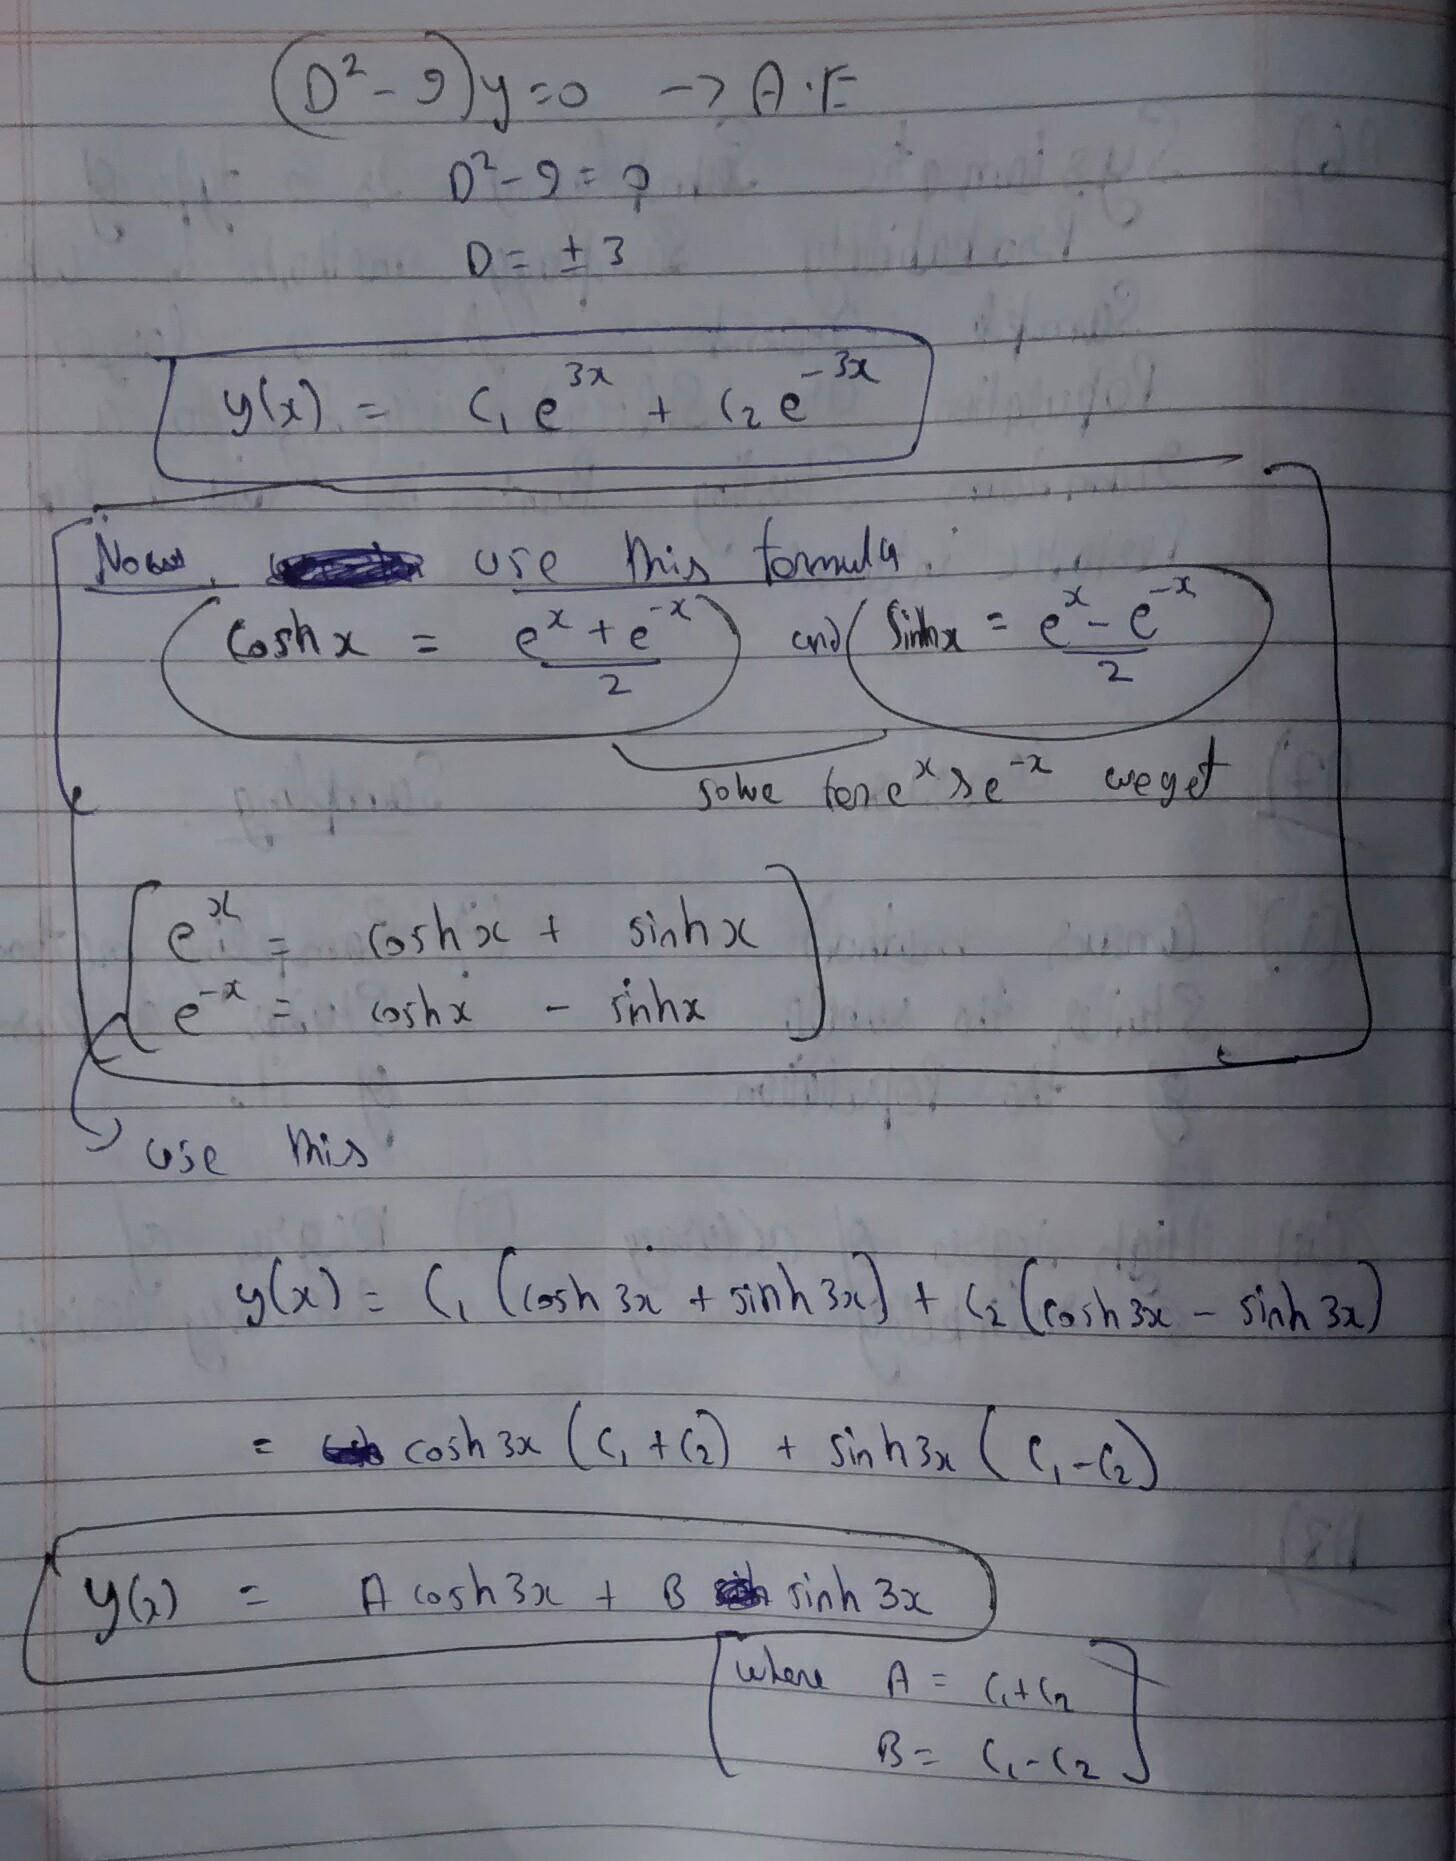 (D² - 9)y = 0 → A.E
D² - 9 = 0
D = ± 3
y(x) = C₁ e³ˣ + C₂ e⁻³ˣ
Now, use this formula.
Cosh x = (eˣ + e⁻ˣ)/2 and Sinhx = (eˣ - e⁻ˣ)/2
solve for eˣ & e⁻ˣ we get
eˣ = cosh x + sinh x
e⁻ˣ = cosh x - sinhx
use this
y(x) = C₁ (cosh 3x + sinh 3x) + C₂ (cosh 3x - sinh 3x)
= cosh 3x (C₁ + C₂) + sinh 3x (C₁ - C₂)
y(x) = A cosh 3x + B sinh 3x
where A = C₁ + C₂
B = C₁ - C₂